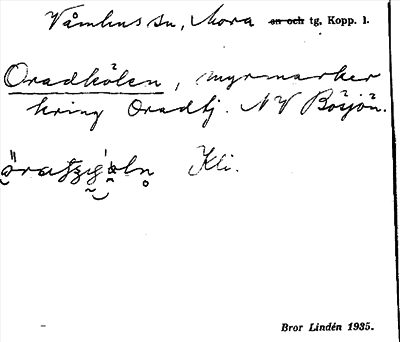 Våmhus sn, Mora sn och tg, Kopp. l.
Oradkölen, myrmarker
kring Oradbj. NV Börjön.
Kli.
Bror Lindén 1935.